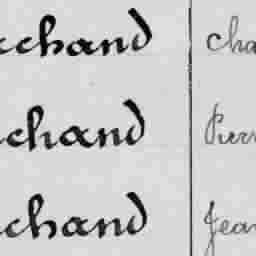 chand cha
chand Pierr
chand Jean